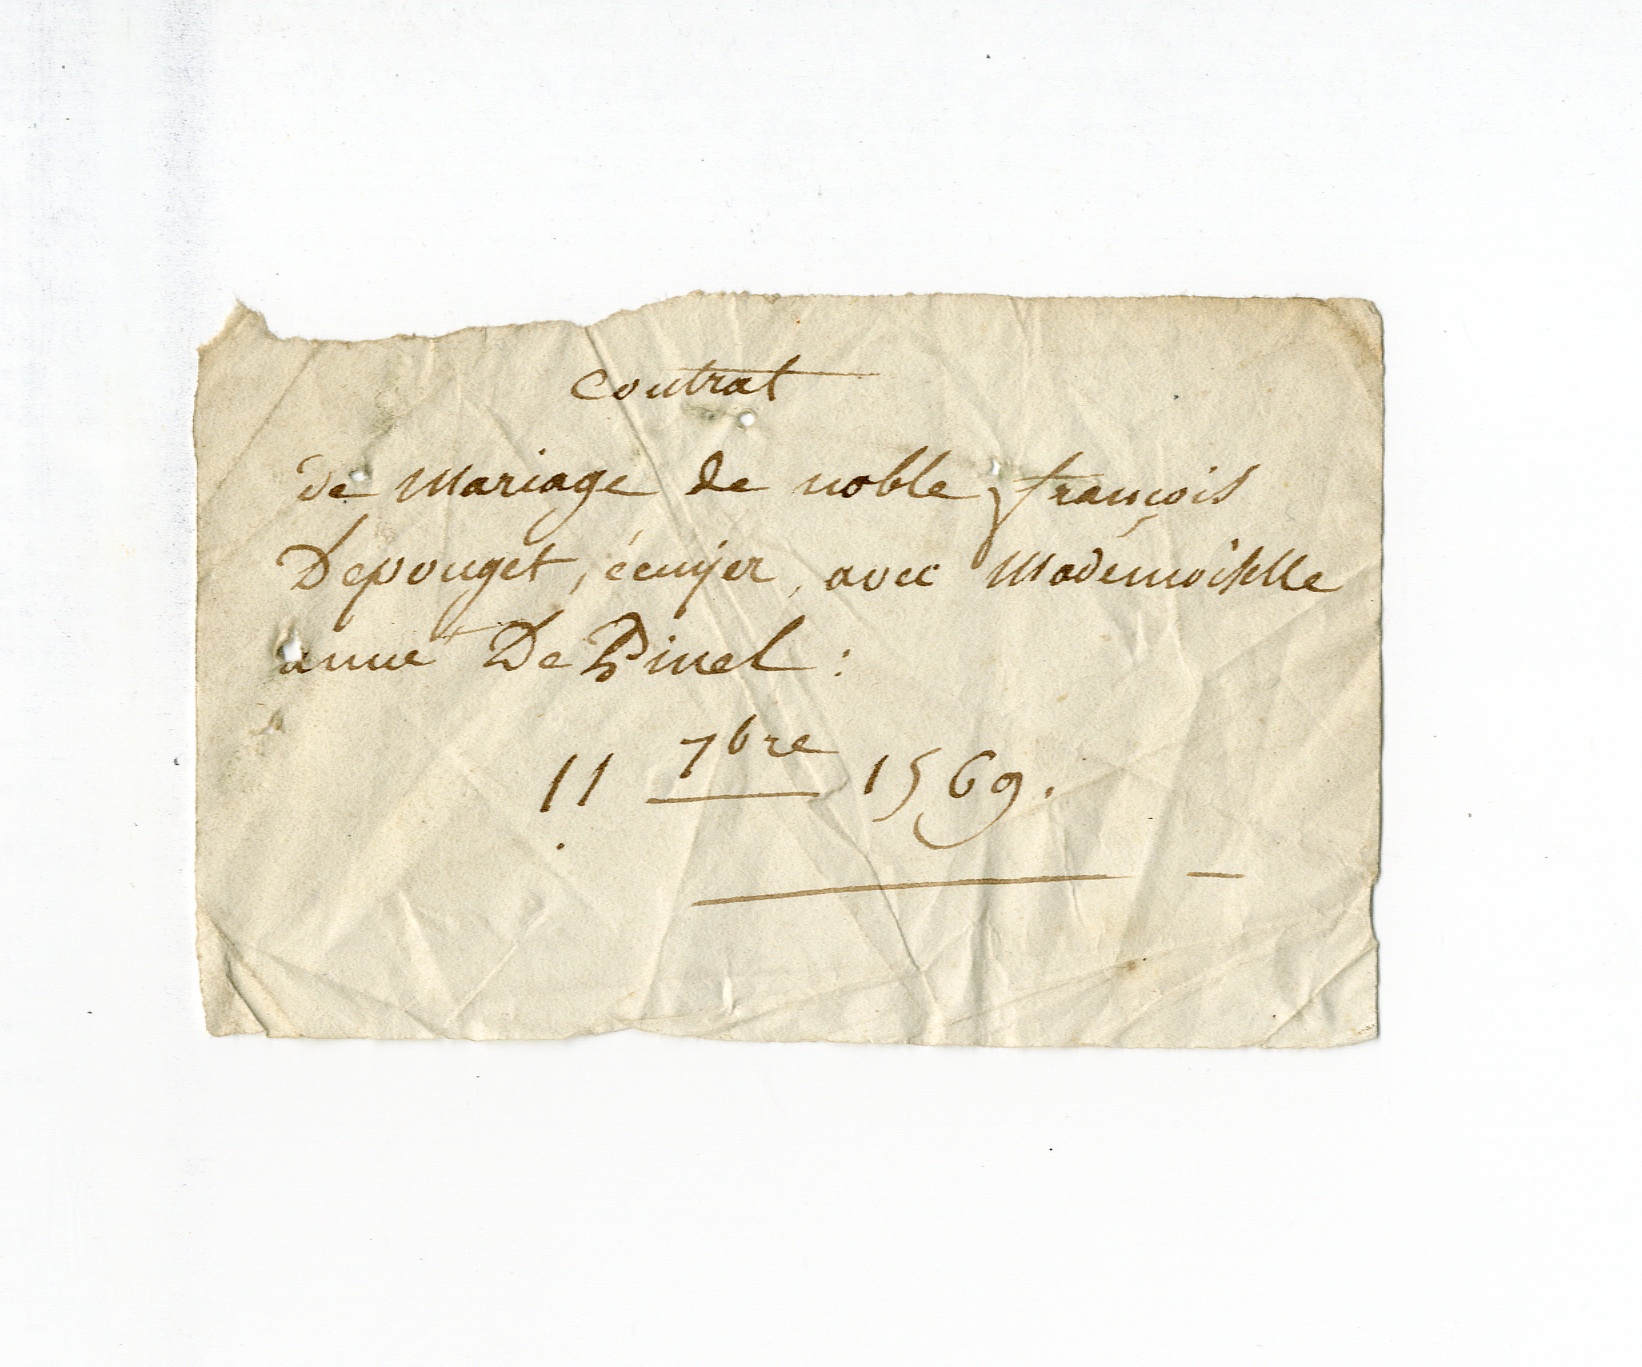 contrat
de mariage de noble françois
Depouget, écuyer, avec Mademoiselle
anne De Pinel :
11 7bre 1569.